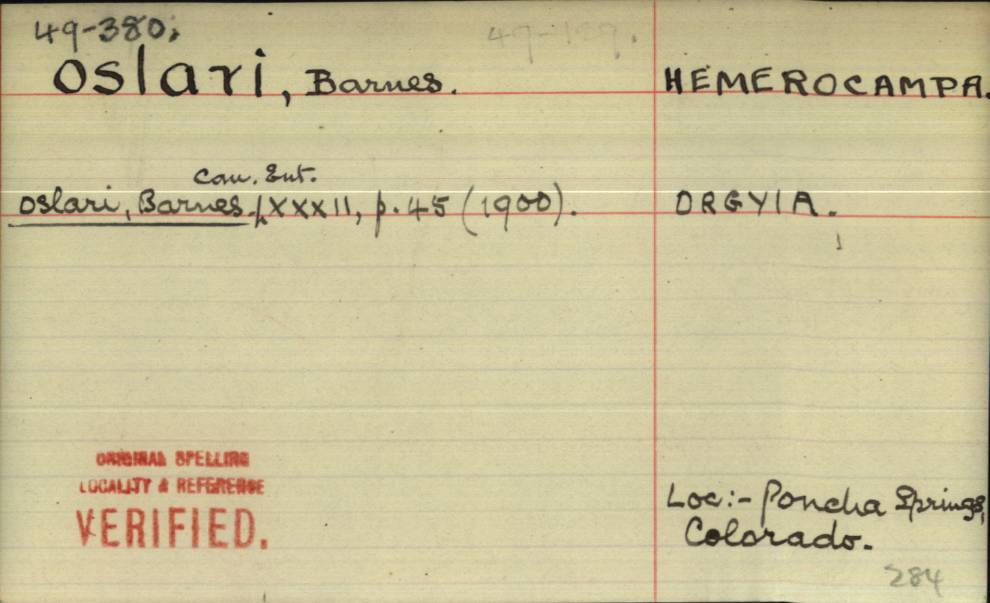 49-380.
oslari, Barnes. HEMEROCAMPA.
Can. Ent.
oslari, Barnes. XXXII, p. 45 (1900). ORGYIA.
ORIGINAL SPELLING
LOCALITY & REFERENCE
VERIFIED.
Loc:- Poncha Springs,
Colorado.
284